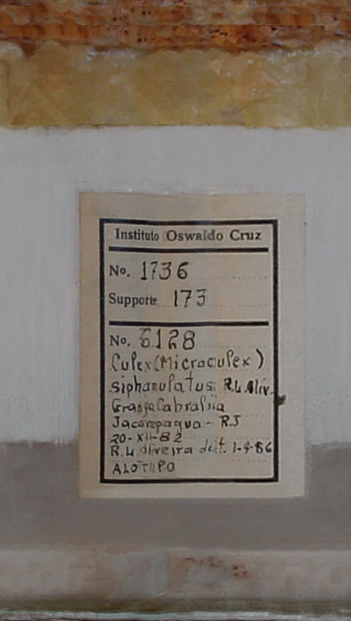 Instituto Oswaldo Cruz
No. 1736
Supporte 173
No. 6128
Culex (Microculex)
siphanulatus R.L. Oliv.
Granja Cabralia
Jacarepagua - RJ
20-XII-82
R.L. Oliveira det. 1-4-86
ALOTIPO